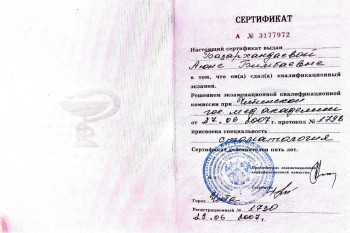 СЕРТИФИКАТ
А № 3177972
Настоящий сертификат выдан
Базаржапаевой
Аюне Бимбаевне
в том, что он(а) сдал(а) квалификационный
экзамен.
Решением экзаменационной квалификационной
комиссии при Читинской
гос мед академии
от 27.06 2007г протокол № 1736
присвоена специальность
стоматология
Сертификат действителен пять лет.
Председатель экзаменационной
квалификационной комиссии
Секретарь
Город Чита
Регистрационный № 1730
22.06 2007г.